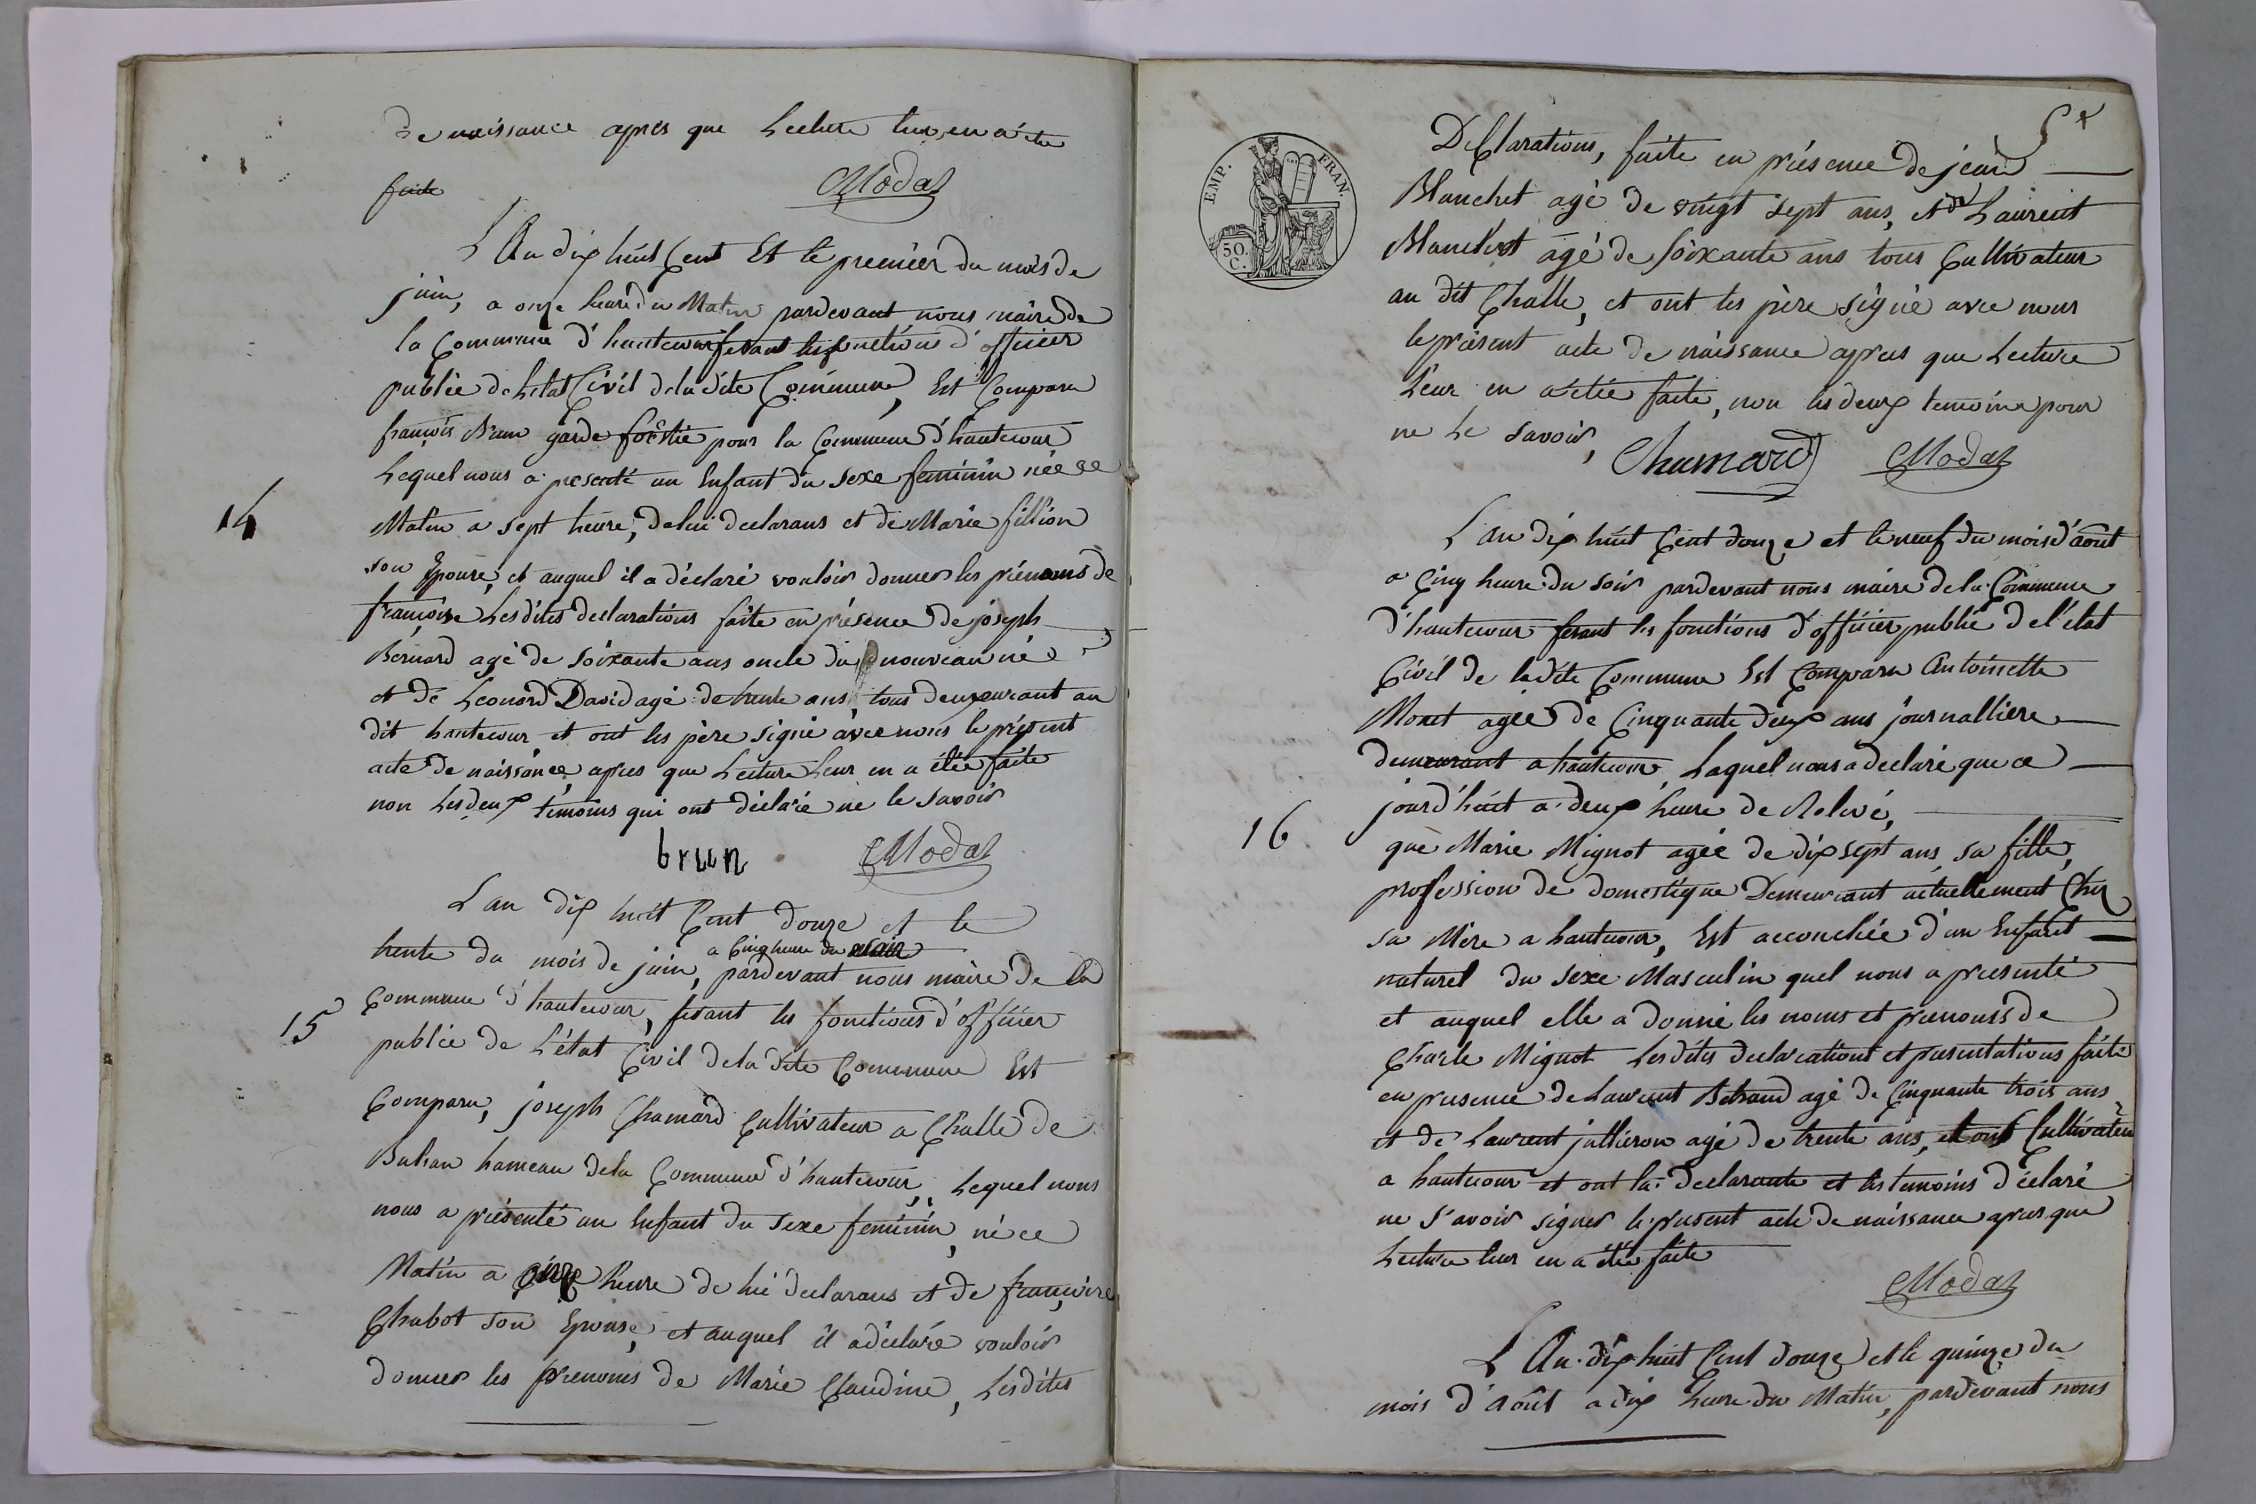 de naissance apres que Lecture leur en a été
faite
Modaz
L'An dix huit Cent Et le premier du mois de
juin, a onze heure du Matin pardevant nous maire de
la Commune d'hautecour fesant les fonctions d'officier
publié de Letat Civil de la dite Commune, Est Comparu
françois Brun garde foêstié pour la Commune d'hautecour
Lequel nous a presenté un Enfant du Sexe feminin née ce
14
Matin a sept heure, de lui declarans et de Marie fillion
son Epouse, et auquel il a déclaré vouloir donner les prénoms de
françoise Lesdites declarations faite en présence de joseph
Bernard agé de soixante ans oncle du nouveau né
et de Leonord David agé de trente ans, tous demeurant au
dit hautecour et ont les père signé avec nous le présent
acte de naissance, apres que Lecture Leur en a étée faite
non Les deux témoins qui ont déclaré ne le Savoir
brun Modaz
L'an dix huit Cent douze et le
a Cinq heure du soir
trente du mois de juin, pardevant nous maire de la
Commune d'hautecour, fesant les fonctions d'officier
15
publiée de L'état Civil de la dite Commune Est
Comparu, joseph Chamard Cultivateur a Challe de
Bohan hameau dela Commune d'hautecour, Lequel nous
nous a présenté un Enfant du Sexe feminin, né ce
Matin a heure de lui declarans et de françoise
Chabot son Epouse, et auquel il a déclaré vouloir
donner les prenoms de Marie Claudine, Lesdites
5
EMP. FRAN.
50.
C.
Déclarations, faite en présence de jean
Blanchet agé de vingt sept ans, et de Laurent
Blanchet agé de soixante ans tous Cultivateur
au dit Challe, et ont les père signé avec nous
le présent acte de naissance apres que Lecture
Leur en a étée faite, non les deux temoins pour
ne Le Savoir,
Chamard Modaz
L'an dix huit Cent douze et le neuf du mois d'août
a Cinq heure du soir pardevant nous maire de la Commune
d'hautecour fesant les fonctions d'officier publié de l'état
Civil de ladite Commune Est Comparu Antoinette
Monet agée de Cinquante deux ans journalliere
demeurant a hautecour, Laquel nous a declaré que ce
jourd'huit a deux heure de Relevé,
16
que Marie Mignot agée de dix sept ans, sa fille,
profession de domestique Demeurant actuellement Chez
sa Mère a hautecour, Est accouchée d'un Enfant
naturel du sexe Masculin quel nous a presenté
et auquel elle a donné les noms et prenoms de
Charle Mignot Lesdites declarations et presentations faite
en presence de Laurent Bétrand agé de Cinquante trois ans
et de Laurent jullieron agé de trente ans, Cultivateur
a hautecour et ont la declarante et les temoins déclaré
ne S'avoir signer le present acte de naissance apres que
Lecture leur en a étée faite
Modaz
L'An dix huit Cent douze et le quinze du
mois d'Août a dix heure du Matin, pardevant nous